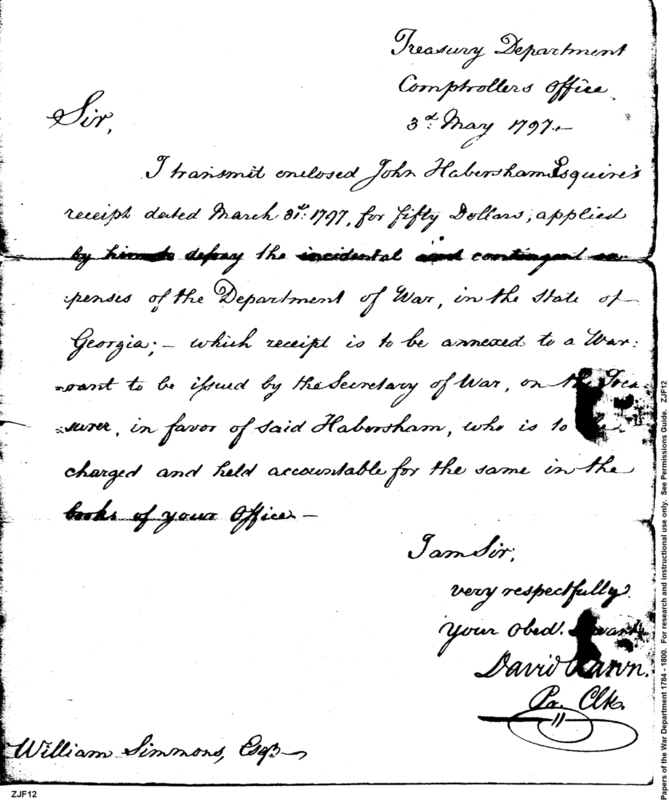 Treasury Department
Comptrollers Office
3d. May 1797.-
Sir,
I transmit enclosed John Habersham Esquire's
receipt dated March 31st. 1797, for fifty Dollars; applied
by him to defray the incidental and contingent ex-
penses of the Department of War, in the State of
Georgia; - which receipt is to be annexed to a War:
:rant to be issued by the Secretary of War, on the Trea-
:surer, in favor of said Habersham, who is to be
charged and held accountable for the same in the
books of your Office -
I am Sir,
very respectfully.
Your Obed. Servant
David Rawn.
Pr. Clk.
William Simmons, Esqr
ZJF12
Papers of the War Department 1784 - 1800. For research and instructional use only. See Permissions Guide. ZJF12